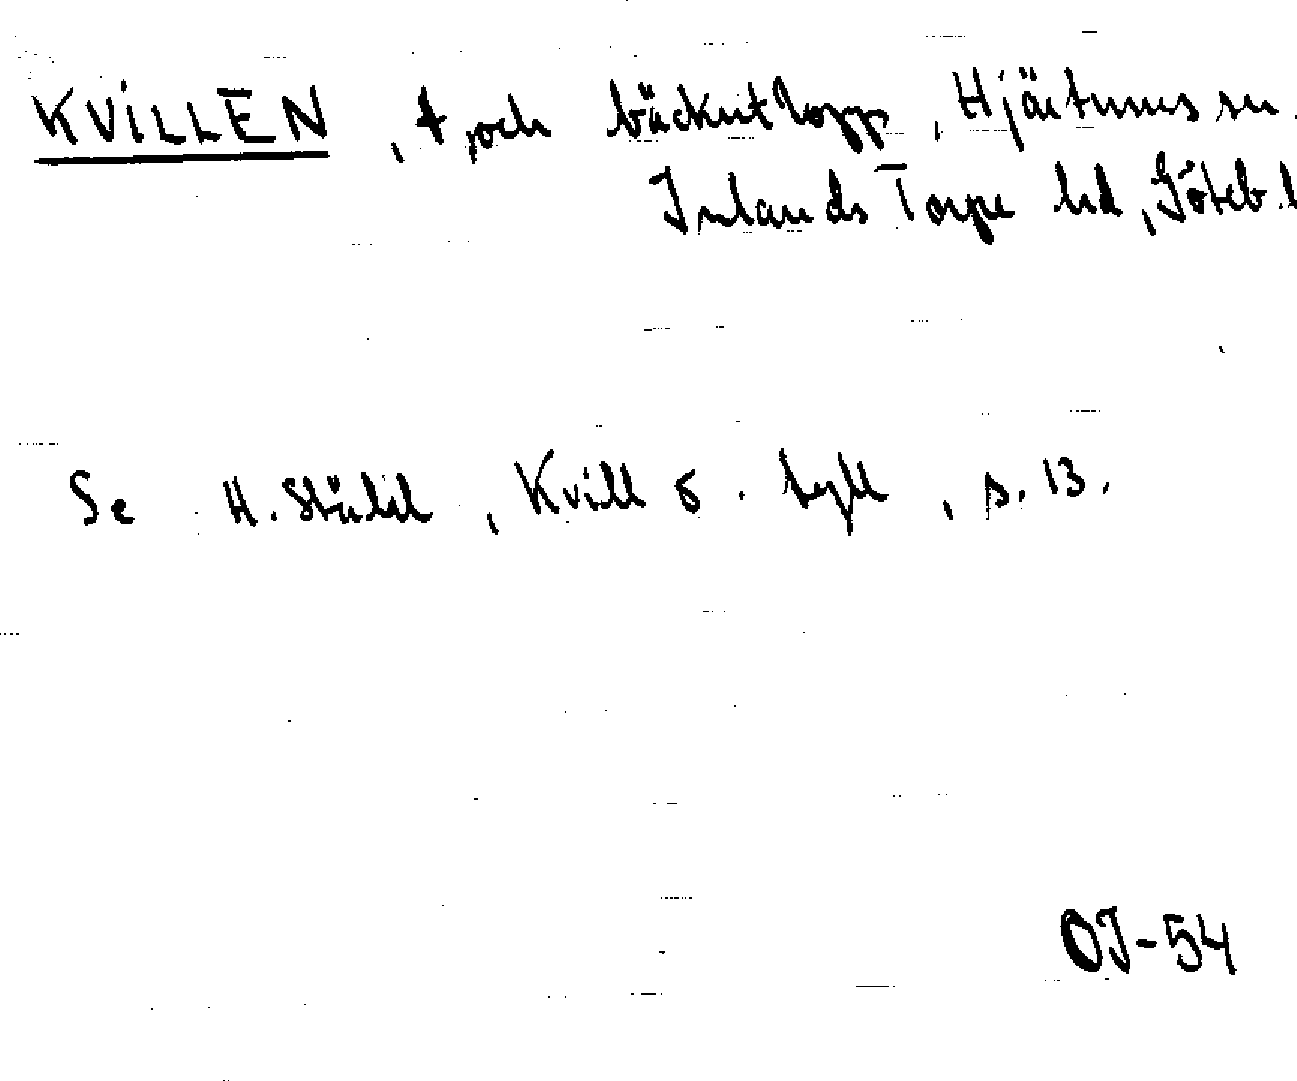 KVILLEN, t, och bäckutlopp, Hjärtums sn.
Inlands Torpe hd, Göteb. l
Se H. Ståhl, Kvill o. tyll, s. 13.
OJ-54